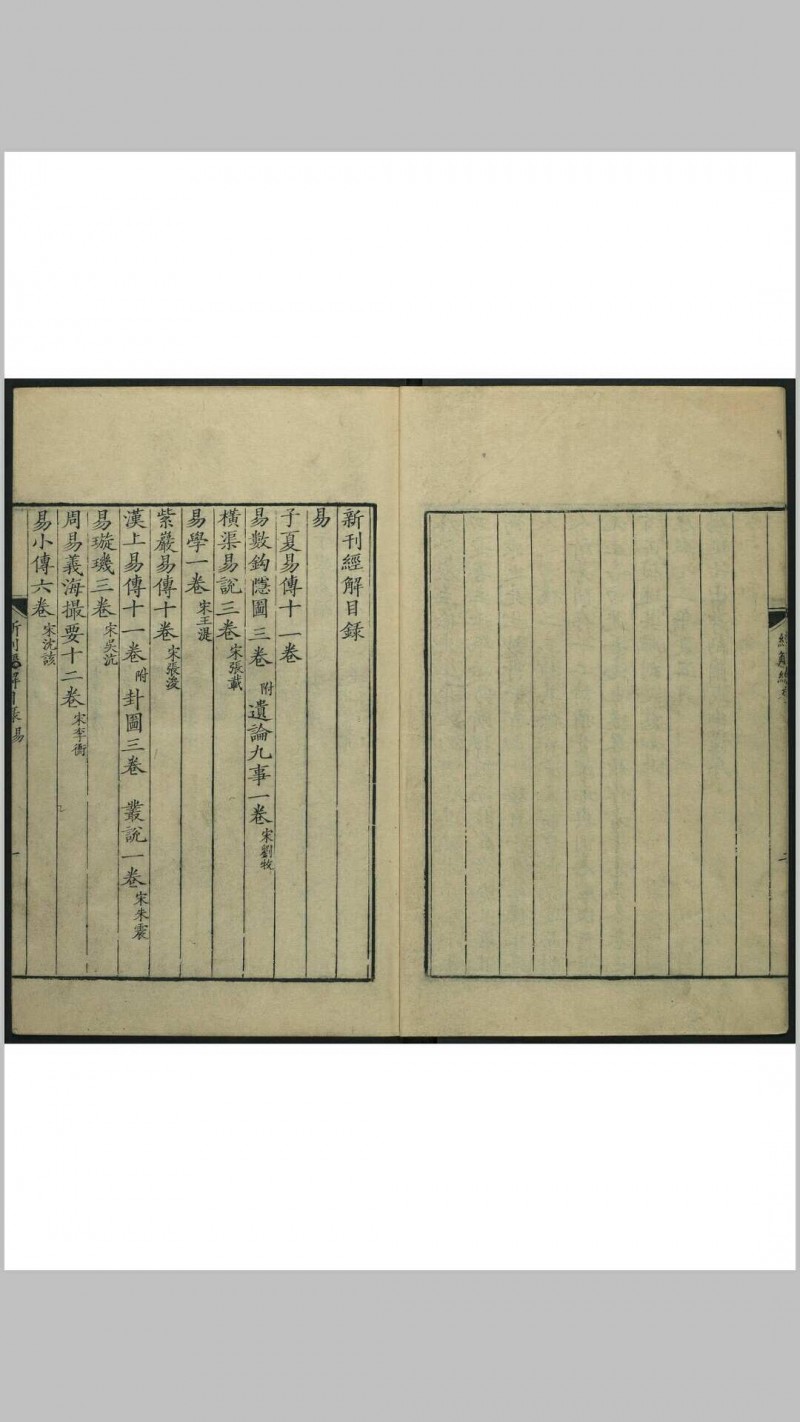 新刊經解目録
易
子夏易傳十一卷
易數鈎隱圖三卷 附 遺論九事一卷 宋劉牧
橫渠易說三卷 宋張載
易學一卷 宋王湜
紫巖易傳十卷 宋張浚
漢上易傳十一卷 附 卦圖三卷 叢說一卷 宋朱震
易璇璣三卷 宋吳沆
周易義海撮要十二卷 宋李衡
易小傳六卷 宋沈該